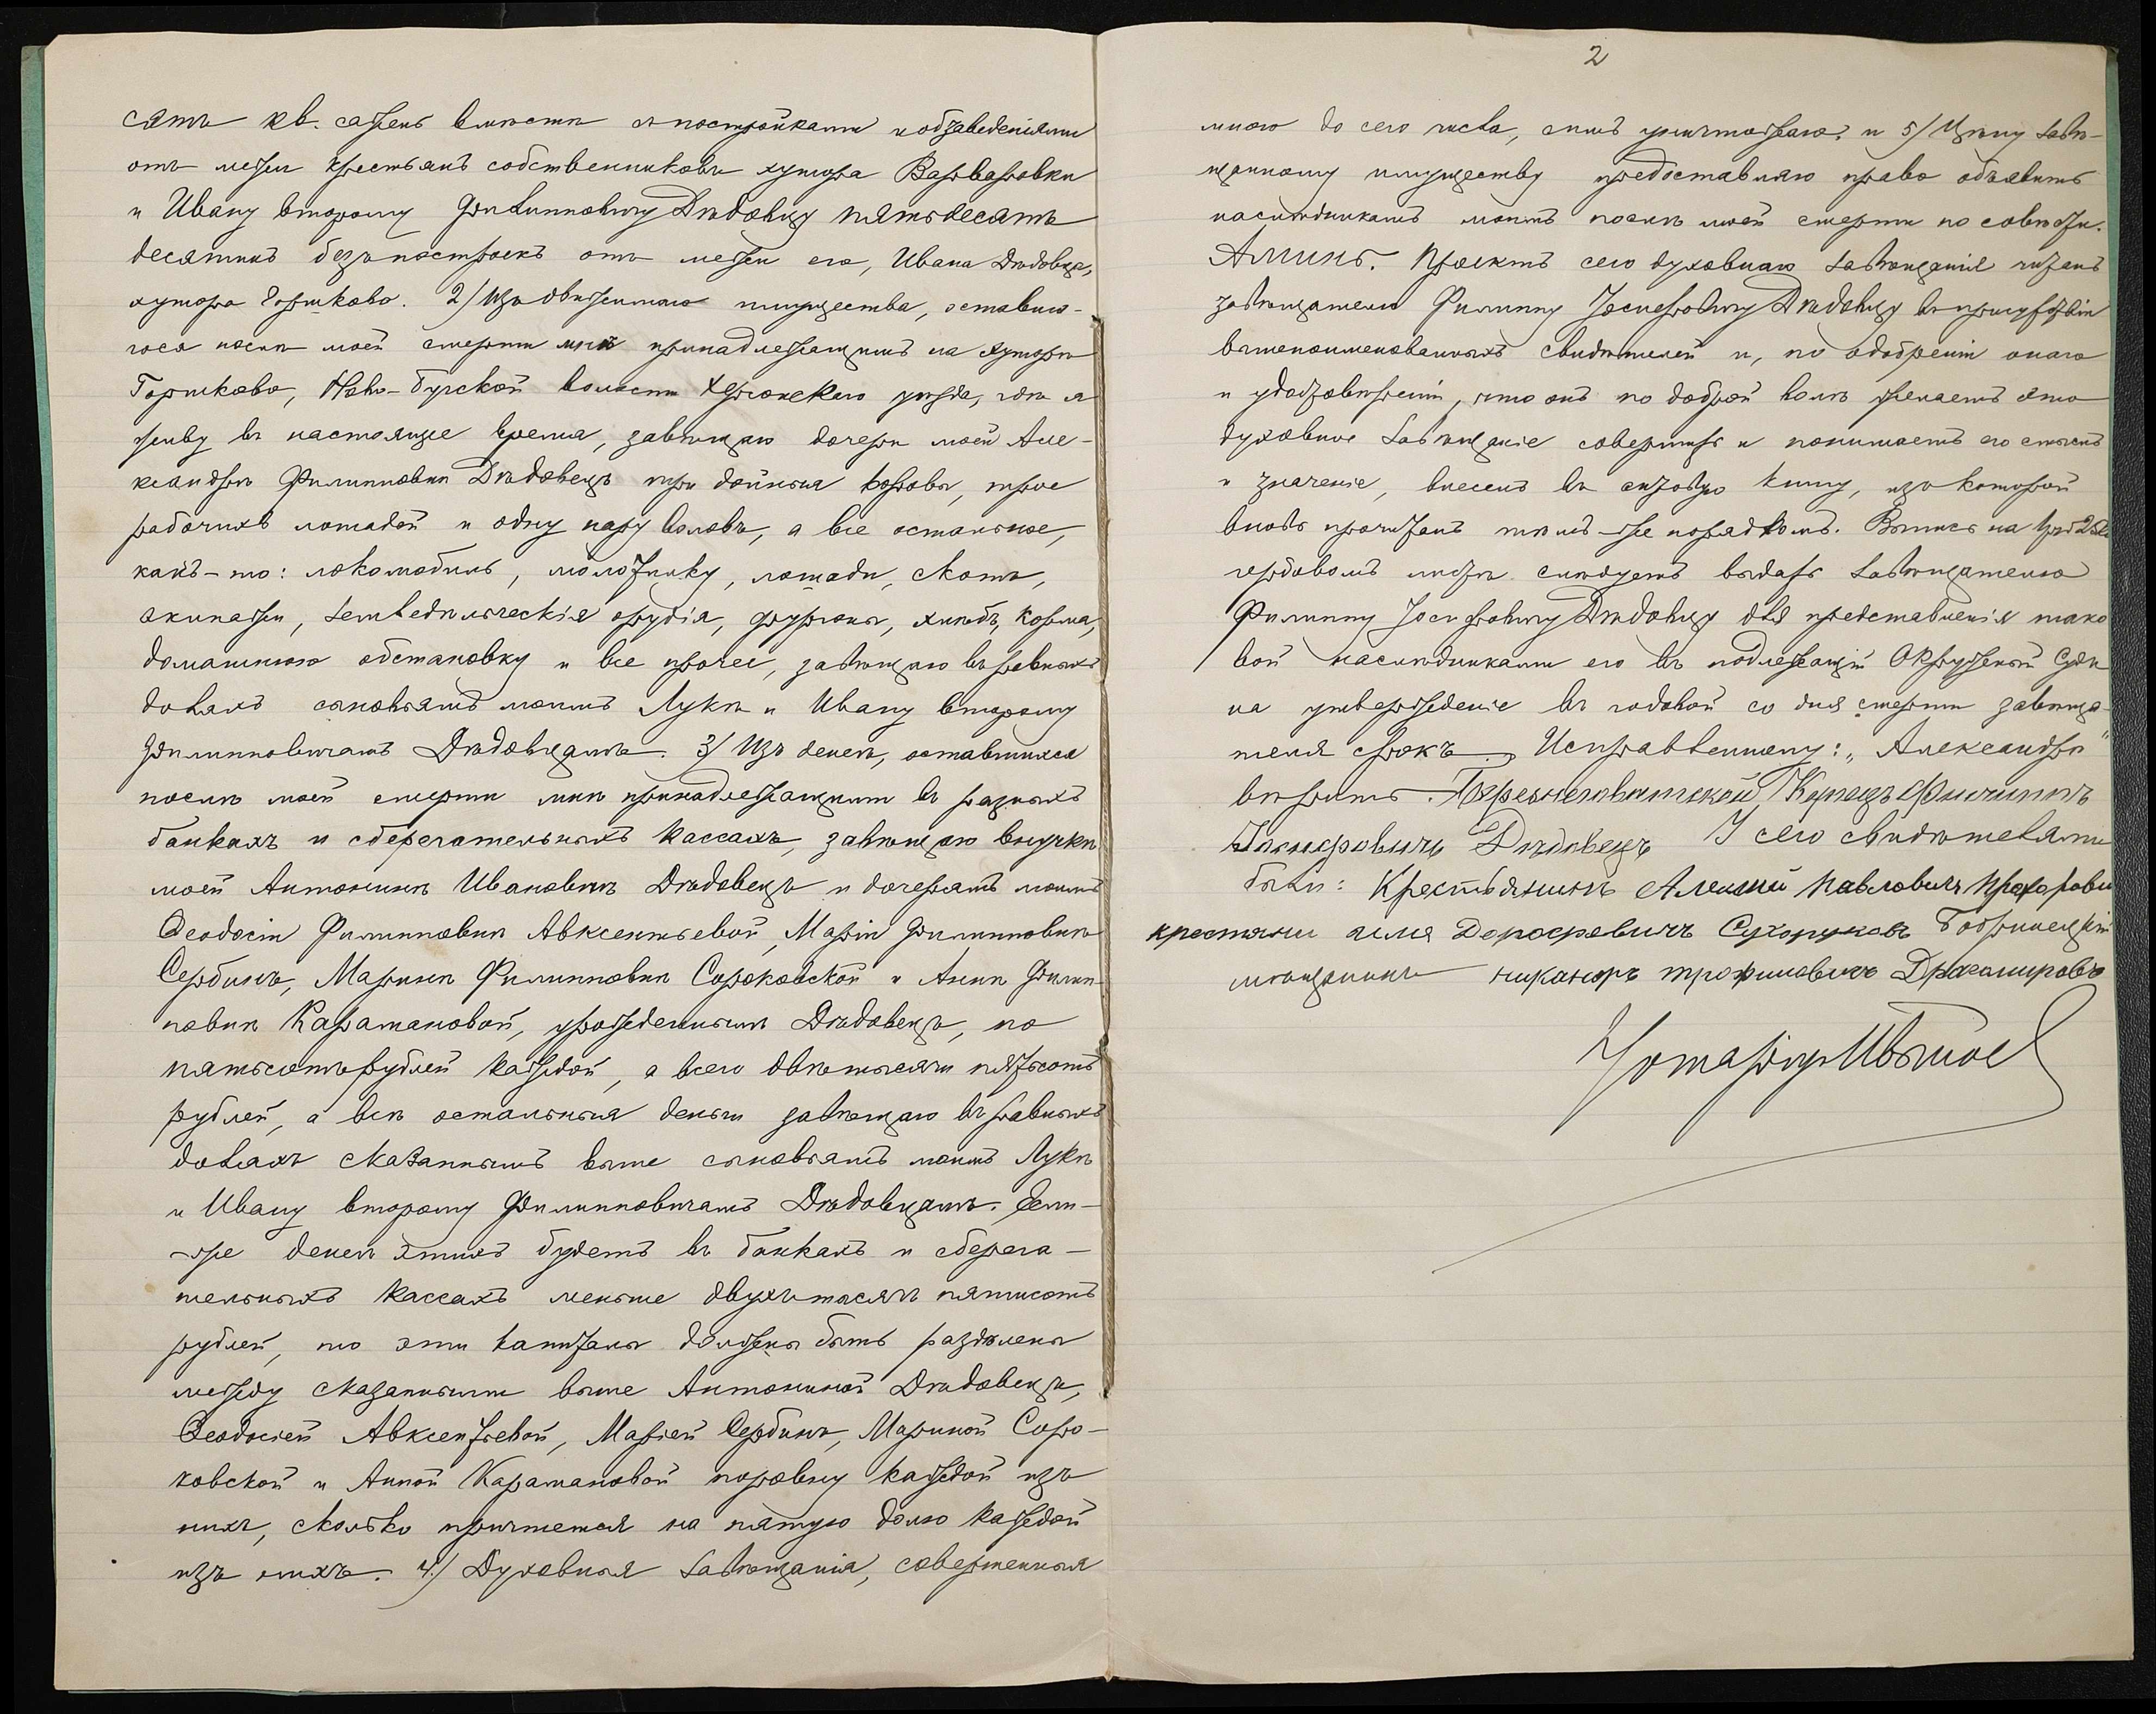 сятъ кв. сажень вмѣстѣ съ постройками и обзаведеніями
отъ межи крестьянъ собственниковъ хутора Варваровки
и Ивану второму Филипповичу Дѣдовцу пятьдесятъ
десятинъ безъ построекъ отъ межи его, Ивана Дѣдовца,
хутора Горшково. 2/ Изъ движимаго имущества, оставша-
гося послѣ моей смерти мнѣ принадлежащимъ на хуторѣ
Горшково, Ново-Бугской волости Херсонскаго уѣзда, гдѣ я
живу въ настоящее время, завѣщаю дочери моей Але-
ксандрѣ Филипповнѣ Дѣдовецъ три дойныя коровы, трое
рабочихъ лошадей и одну пару воловъ, а все остальное,
какъ-то: локомобиль, молотилку, лошади, скотъ,
экипажи, земледѣльческія орудія, фургоны, хлѣбъ, корма,
домашнюю обстановку и все прочее, завѣщаю въ равныхъ
доляхъ сыновьямъ моимъ Лукѣ и Ивану второму
Филипповичамъ Дѣдовцамъ. 3/ Изъ денегъ, оставшихся
послѣ моей смерти мнѣ принадлежащими въ разныхъ
банкахъ и сберегательныхъ кассахъ, завѣщаю внучкѣ
моей Антонинѣ Ивановнѣ Дѣдовецъ и дочерямъ моимъ
Ѳеодосіи Филипповнѣ Авксентьевой, Маріи Филипповнѣ
Сербинъ, Маринѣ Филипповнѣ Сороковской и Аннѣ Филип-
повнѣ Карамановой, урожденнымъ Дѣдовецъ, по
пятьсотъ рублей каждой, а всего двѣ тысячи пятьсотъ
рублей, а всѣ остальныя деньги завѣщаю въ равныхъ
доляхъ сказаннымъ выше сыновьямъ моимъ Лукѣ
и Ивану второму Филипповичамъ Дѣдовцамъ. Если-
-же денегъ этихъ будетъ въ банкахъ и сберега-
тельныхъ кассахъ меньше двухъ тысячъ пятисотъ
рублей, то эти капиталы должны быть раздѣлены
между сказанными выше Антониной Дѣдовецъ,
Ѳеодосіей Авксентьевой, Маріей Сербинъ, Мариной Соро-
ковской и Анной Карамановой поровну каждой изъ
нихъ, сколько причтется на пятую долю каждой
изъ нихъ. 4/ Духовныя завѣщанія, совершенныя
2
мною до сего числа, симъ уничтожаю. и 5/ Цѣну завѣ-
щанному имуществу предоставляю право объявить
наслѣдникамъ моимъ послѣ моей смерти по совѣсти.
Аминь. Проектъ сего духовнаго завѣщанія читанъ
завѣщателю Филиппу Іосифовичу Дѣдовцу въ присутствіи
вышепоименованныхъ свидѣтелей и, по одобреніи онаго
и удостовѣреніи, что онъ по доброй волѣ желаетъ это
духовное завѣщаніе совершить и понимаетъ его смыслъ
и значеніе, внесенъ въ актовую книгу, изъ которой
вновь прочитанъ тѣмъ-же порядкомъ. Выпись на
гербовомъ листѣ слѣдуетъ выдать завѣщателю
Филиппу Іосифовичу Дѣдовцу для представленія тако
вой наслѣдниками его въ подлежащій Окружный Судъ
на утвержденіе въ годовой со дня смерти завѣща-
теля срокъ. Исправленному: „Александрѣ"
вѣрить. Купецъ Филиппъ
Іосифовичъ Дѣдовецъ У сего свидѣтелями
были: Крестьянинъ Алексѣй Павловичъ Прохоровъ
крестьянинъ Дорофеевичъ Сухоруковъ Бобринецкій
мѣщанинъ никаноръ трофимовичъ Драгомировъ
Нотаріусъ